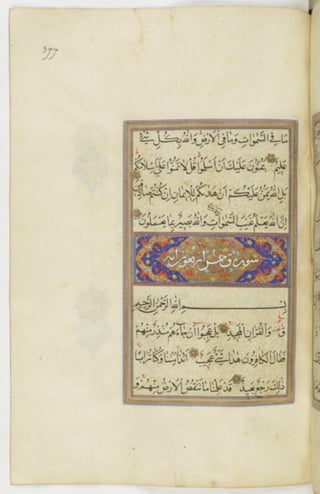 ٣٦٦
ما في السموات وما في الارض والله بكل شئ
عليم يمنون عليك ان اسلموا قل لا تمنوا علي اسلامكم
بل الله يمن عليكم ان هدىكم للايمان ان كنتم صادقين
ان الله يعلم غيب السموات والله بصير بما تعملون
سورة ق خمس واربعون اية
بسم الله الرحمن الرحيم
ق والقران المجيد بل عجبوا ان جاءهم منذر منهم
فقال الكافرون هذا شئ عجيب ءاذا متنا وكنا ترابا
ذلك رجع بعيد قد علمنا ما تنقص الارض منهم و